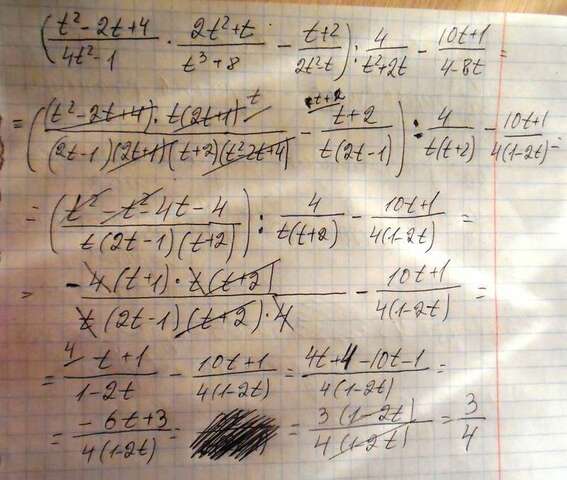 (t²-2t+4 / 4t²-1 · 2t²+t / t³+8 - t+2 / 2t²t) : 4 / t²+2t - 10t+1 / 4-8t =
= ((t²-2t+4) · t(2t+1) t / (2t-1)(2t+1)(t+2)(t²2t+4) - t+2 t+2 / t(2t-1)) : 4 / t(t+2) - 10t+1 / 4(1-2t) =
= (t²-t²-4t-4 / t(2t-1)(t+2)) : 4 / t(t+2) - 10t+1 / 4(1-2t) =
= -4(t+1)·t(t+2) / t(2t-1)(t+2)·4 - 10t+1 / 4(1-2t) =
= 4 t+1 / 1-2t - 10t+1 / 4(1-2t) = 4t+4-10t-1 / 4(1-2t) =
= -6t+3 / 4(1-2t) = = 3(1-2t) / 4(1-2t) = 3 / 4